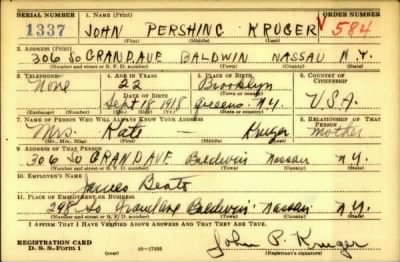 SERIAL NUMBER 1. NAME (Print) ORDER NUMBER
1337 JOHN PERSHING KRUGER V584
(First) (Middle) (Last)
2. ADDRESS (Print)
306 SO GRAND AVE BALDWIN NASSAU N.Y.
(Number and street or R. F. D. number) (Town) (County) (State)
3. TELEPHONE 4. AGE IN YEARS 5. PLACE OF BIRTH 6. COUNTRY OF CITIZENSHIP
None 22 Brooklyn
DATE OF BIRTH (Town or county)
Sept 18 1918 Queens N.Y. U.S.A.
(Exchange) (Number) (Mo.) (Day) (Yr.) (State or country)
7. NAME OF PERSON WHO WILL ALWAYS KNOW YOUR ADDRESS 8. RELATIONSHIP OF THAT PERSON
Mrs. Kate — Kruger Mother
(Mr., Mrs., Miss) (First) (Middle) (Last)
9. ADDRESS OF THAT PERSON
306 SO GRAND AVE Baldwin Nassau N.Y.
(Number and street or R. F. D. number) (Town) (County) (State)
10. EMPLOYER'S NAME
James
11. PLACE OF EMPLOYMENT OR BUSINESS
298 So Grand ave Baldwin Nassau N.Y.
(Number and street or R. F. D. number) (Town) (County) (State)
I AFFIRM THAT I HAVE VERIFIED ABOVE ANSWERS AND THAT THEY ARE TRUE.
REGISTRATION CARD
D. S. S. Form 1 (over) 16—17105 John P. Kruger
(Registrant's signature)